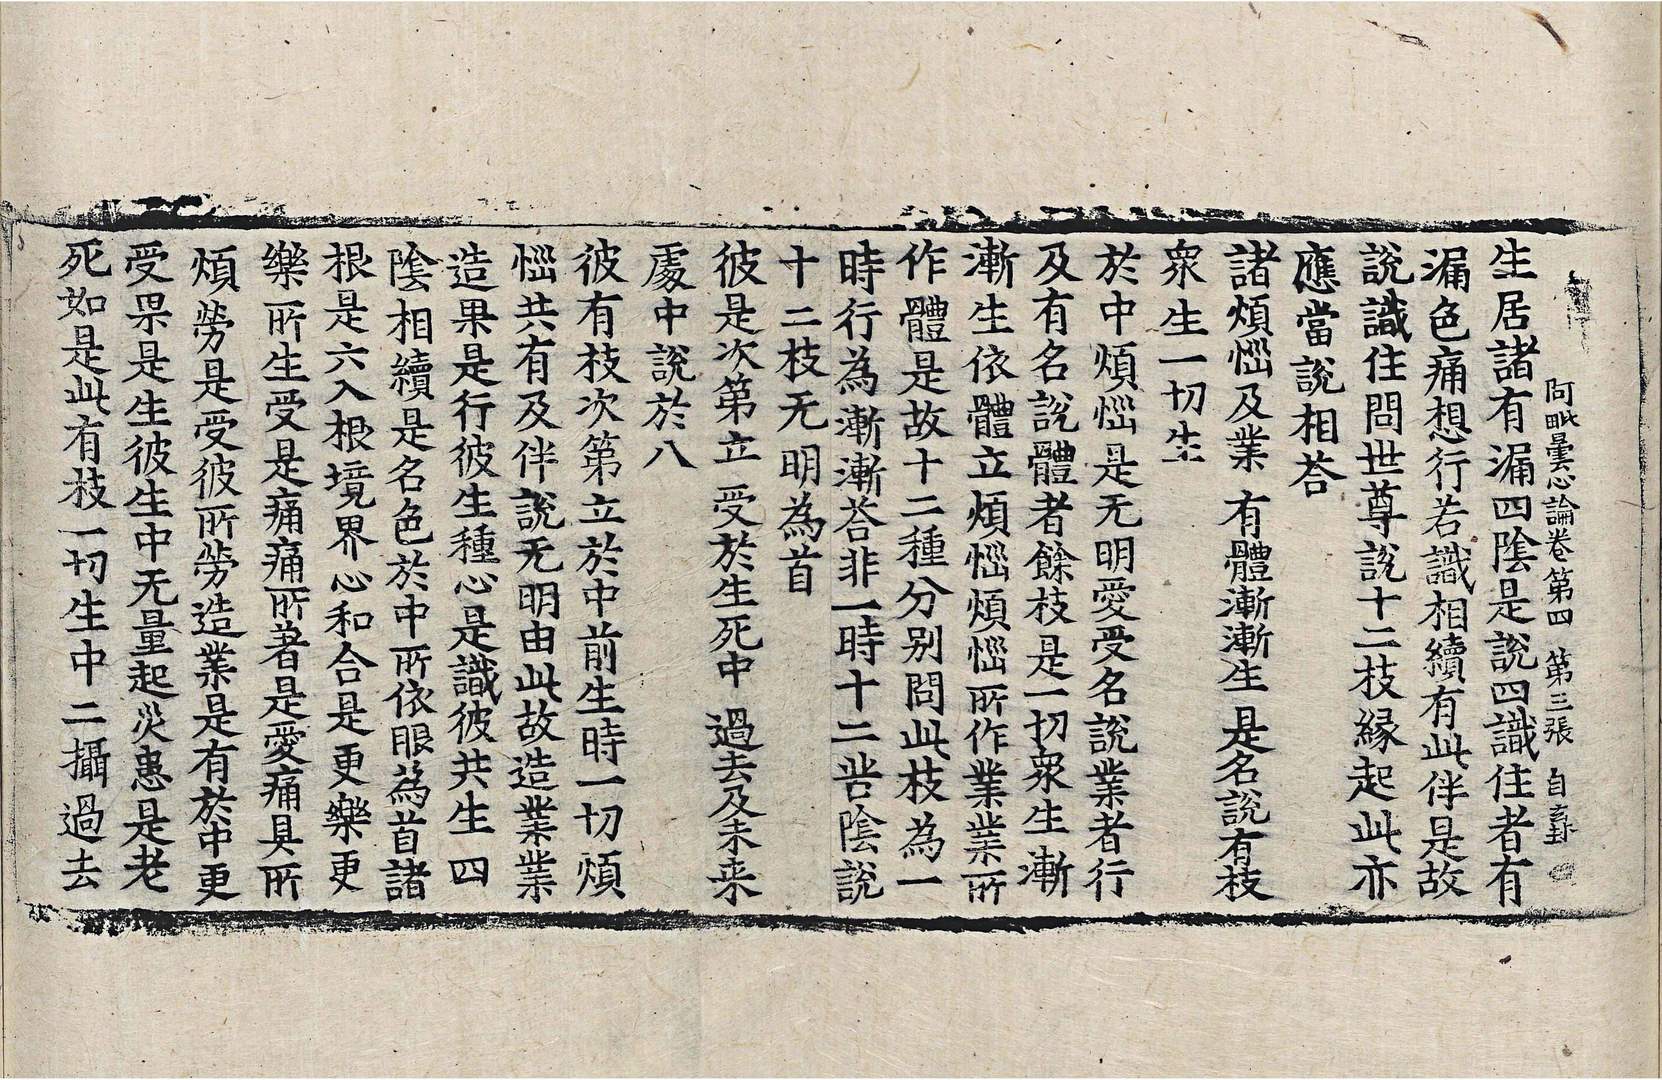 阿毗曇心論卷第四　第三張　自
生居諸有漏四陰是說四識住者有
漏色痛想行若識相續有此伴是故
說識住問世尊說十二枝縁起此亦
應當說相荅
諸煩惱及業　有體漸漸生　是名說有枝
衆生一切生
於中煩惱是无明愛受名說業者行
及有名說體者餘枝是一切衆生漸
漸生依體立煩惱煩惱所作業業所
作體是故十二種分别問此枝為一
時行為漸漸荅非一時十二皆陰說
十二枝无明為首
彼是次第立　受於生死中　過去及未来
處中說於八
彼有枝次第立於中前生時一切煩
惱共有及伴說无明由此故造業業
造果是行彼生種心是識彼共生四
陰相續是名色於中所依眼為首諸
根是六入根境界心和合是更樂更
樂所生受是痛痛所著是愛痛具所
煩勞是受彼所勞造業是有於中更
受果是生彼生中无量起災患是老
死如是此有枝一切生中二攝過去